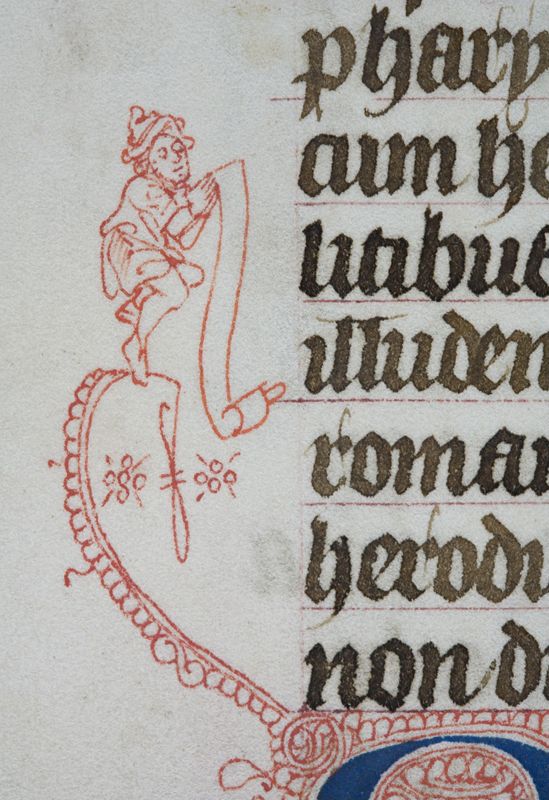 phary
cum he
litibus
illuden
roman
herodi
non di